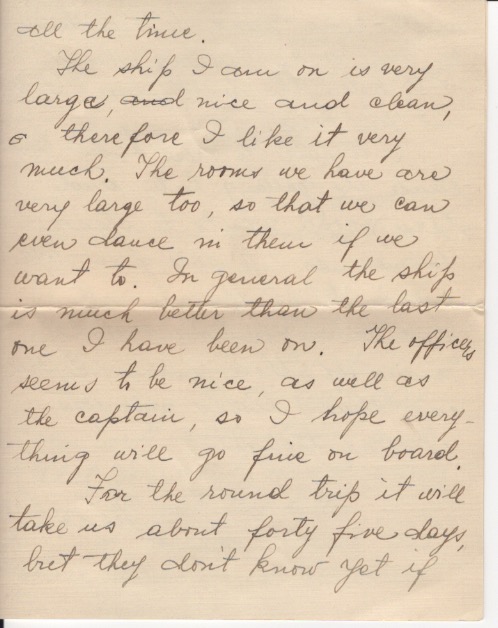 all the time.
The ship I am on is very
large, and nice and clean,
therefore I like it very
much. The rooms we have are
very large too, so that we can
even dance in them if we
want to. In general the ship
is much better than the last
one I have been on. The officers
seems to be nice, as well as
the captain, so I hope every-
thing will go fine on board.
For the round trip it will
take us about forty five days,
but they don't know yet if